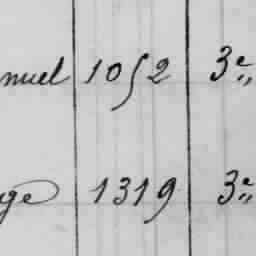 nuel 1052 3e
ge 1319 3e